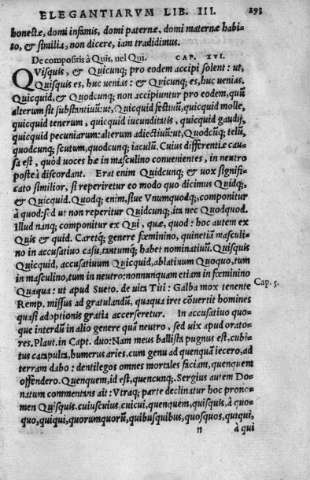 ELEGANTIARVM LIB. III. 293
honestæ, domi infamis, domi paternæ, domi maternæ habi-
to, & similia, non dicere, iam tradidimus.
De compositis à Quis, nel Qui. CAP. XVI.
QVisquis, & Quicunq; pro eodem accipi solent: ut,
Quisquis es, huc uenias: & Quicunq; es, huc uenias.
Quicquid, & Quodcunq; non accipiuntur pro eodem, quũ
alterum sit substantiuũ: ut, Quicquid lectuũ, quicquid molle,
quicquid tenerum, quicquid iucunditatis, quicquid gaudij,
quicquid pecuniarum: alterum adiectiuũ: ut, Quodcũq; telũ,
quodcunq; scutum, quodcunq; iaculũ. Cuius differentiæ cau-
sa est, quòd uoces hæ in masculino conuenientes, in neutro
postea discordant. Erat enim Quidcunq; & uox significa-
cato similior, si reperiretur eo modo quo dicimus Quidq;
& Quicquid. Quodq; enim, siue Vnumquodq;, componitur
à quod: sed ut non reperitur Quidcunq; ita nec Quodquod.
Illud nanq; componitur ex Qui, quæ, quod: hoc autem ex
Quis & quid. Caretq; genere fœminino, quinetiā masculi-
no in accusatiuo casu, tantumq; habet nominatiuũ. Quisquis
Quicquid, accusatiuum Quicquid, ablatiuum Quoquo, tum
in masculino, tum in neutro: nonnunquam etiam in fœminino
Quaqua: ut apud Sueto. de uita Titi: Galba mox tenente Cap. 5.
Remp. missus ad gratulandũ, quaqua iret cōuertit homines
quasi adoptionis gratia accerseretur. In accusatiuo quo-
que interdũ in alio genere quā neutro, sed uix apud orato-
res. Plaut. in Capt. duo: Nam meus ballista pugnus est, cubi-
tus catapulta, humerus aries. cum genu ad quenquā iecero, ad
terram dabo: dentilegos omnes mortales faciam, quenquem
offendero. Quenquem, id est, quencunq;. Sergius autem Do-
natum commentans ait: Vtraq; parte declinatur hoc prono-
men Quisquis. cuiuscuius, cuicui, quenquem, quisquis, à quo-
quo, quiqui, quorumquorũ, quibusquibus, quosquos, quiqui,
n à qui